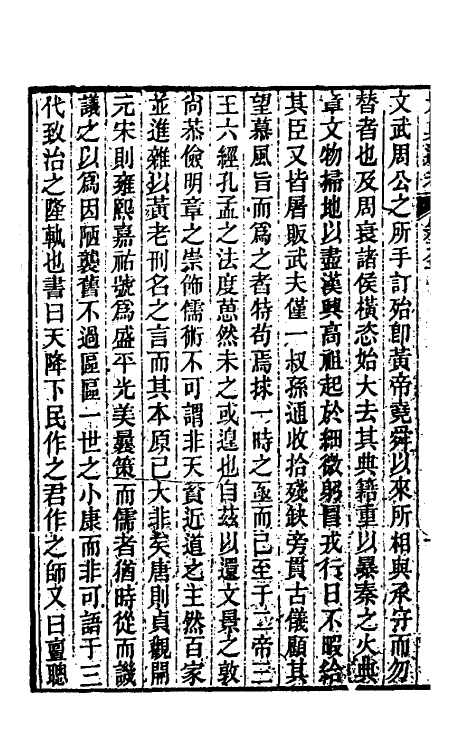 文武周公之所手訂殆卽黃帝堯舜以來所相與承守而勿
替者也及周衰諸侯橫恣始大去其典籍重以暴秦之火典
章文物掃地以盡漢興高祖起於細微躬冒戎行日不暇給
其臣又皆屠販武夫僅一叔孫通收拾殘缺旁貫古儀顧其
望慕風旨而爲之者特茍焉捄一時之亟而已至于二帝三
王六經孔孟之法度蒽然未之或遑也自茲以還文景之敦
尙恭儉明章之崇飾儒術不可謂非天資近道之主然百家
並進雜以黃老刑名之言而其本原已大非矣唐則貞觀開
元宋則雍熙嘉祐號爲盛平光美曩策而儒者猶時從而譏
議之以爲因陋襲舊不過區區一世之小康而非可語于三
代致治之隆軌也書曰天降下民作之君作之師又曰亶聰